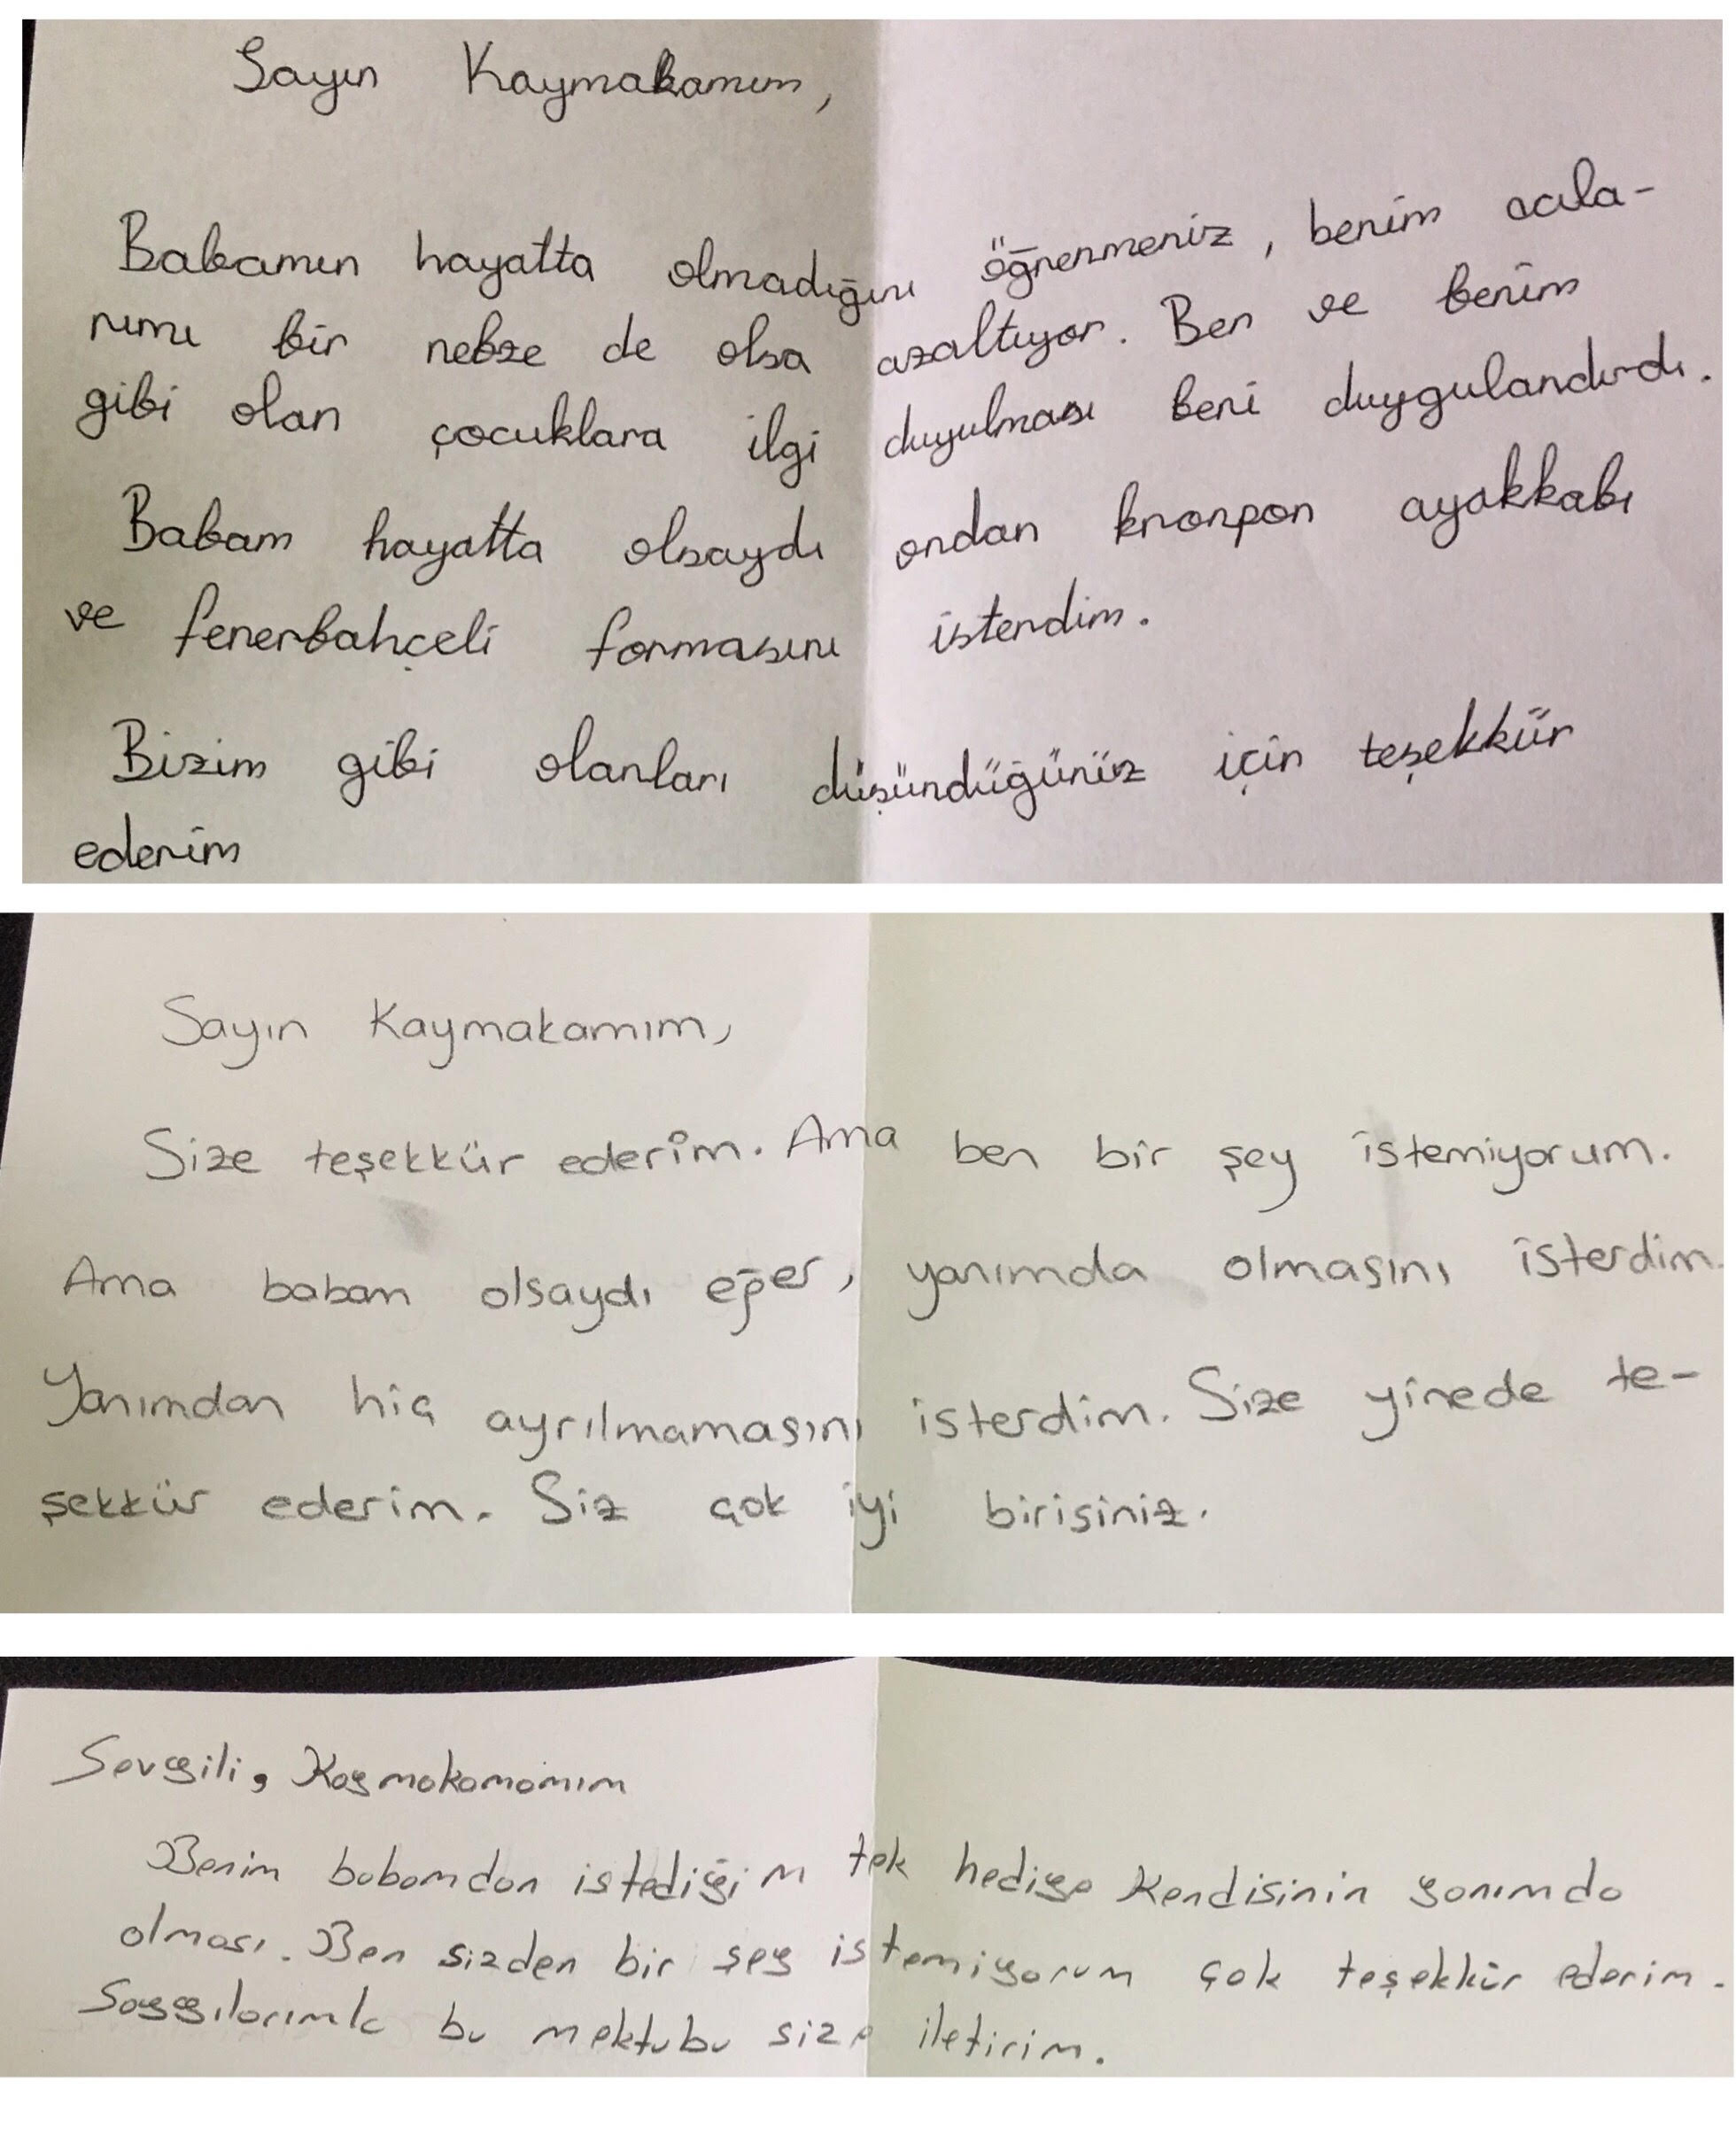 Sayın Kaymakamım,
Babamın hayatta olmadığını öğrenmeniz, benim acıla-
rımı bir nebze de olsa azaltıyor. Ben ve benim
gibi olan çocuklara ilgi duyulması beni duygulandırdı.
Babam hayatta olsaydı ondan kronpon ayakkabı
ve fenerbahçeli formasını isterdim.
Bizim gibi olanları düşündüğünüz için teşekkür
ederim
Sayın Kaymakamım,
Size teşekkür ederim. Ama ben bir şey istemiyorum.
Ama babam olsaydı eğer, yanımda olmasını isterdim.
Yanımdan hiç ayrılmamasını isterdim. Size yinede te-
şekkür ederim. Siz çok iyi birisiniz.
Sevgili, Kaymakamamım
Benim babamdan istediğim tek hediye Kendisinin yanımda
olması. Ben sizden bir şey istemiyorum çok teşekkür ederim.
Saygılarımla bu mektubu size iletirim.